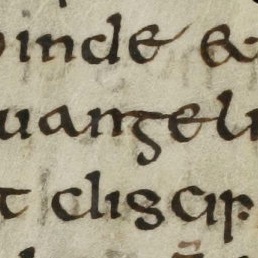 inde &
uangeli
t discip